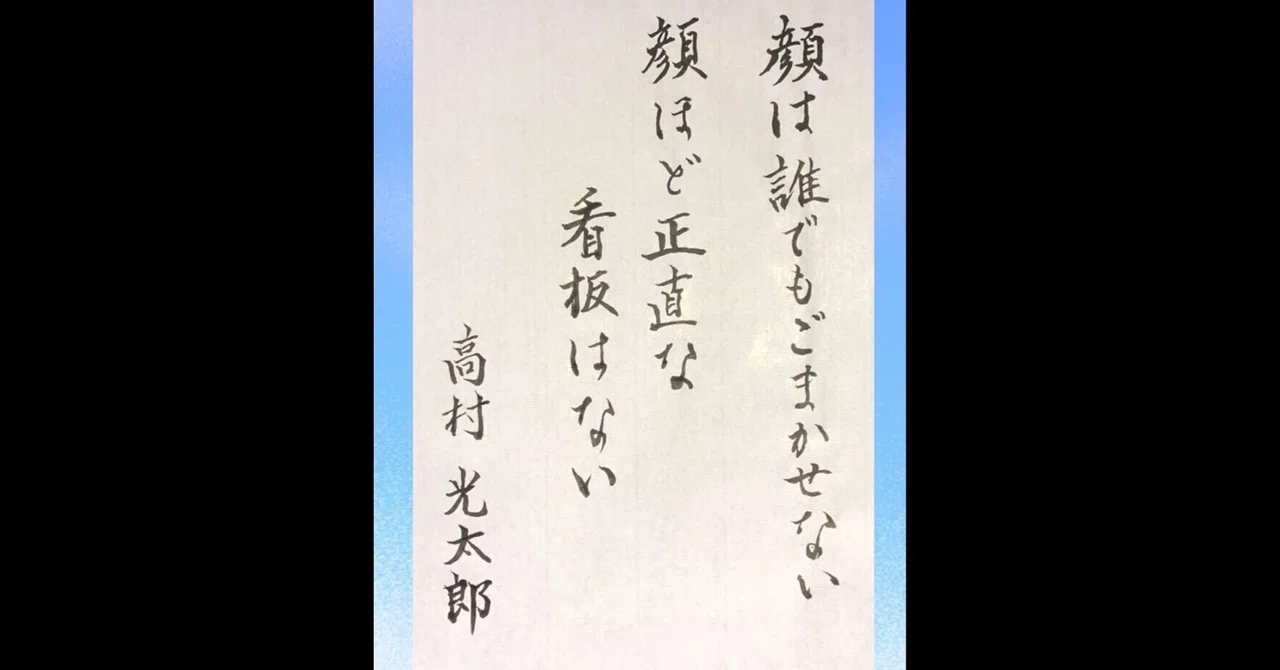 顔は誰でもごまかせない
顔ほど正直な
看板はない
高村 光太郎